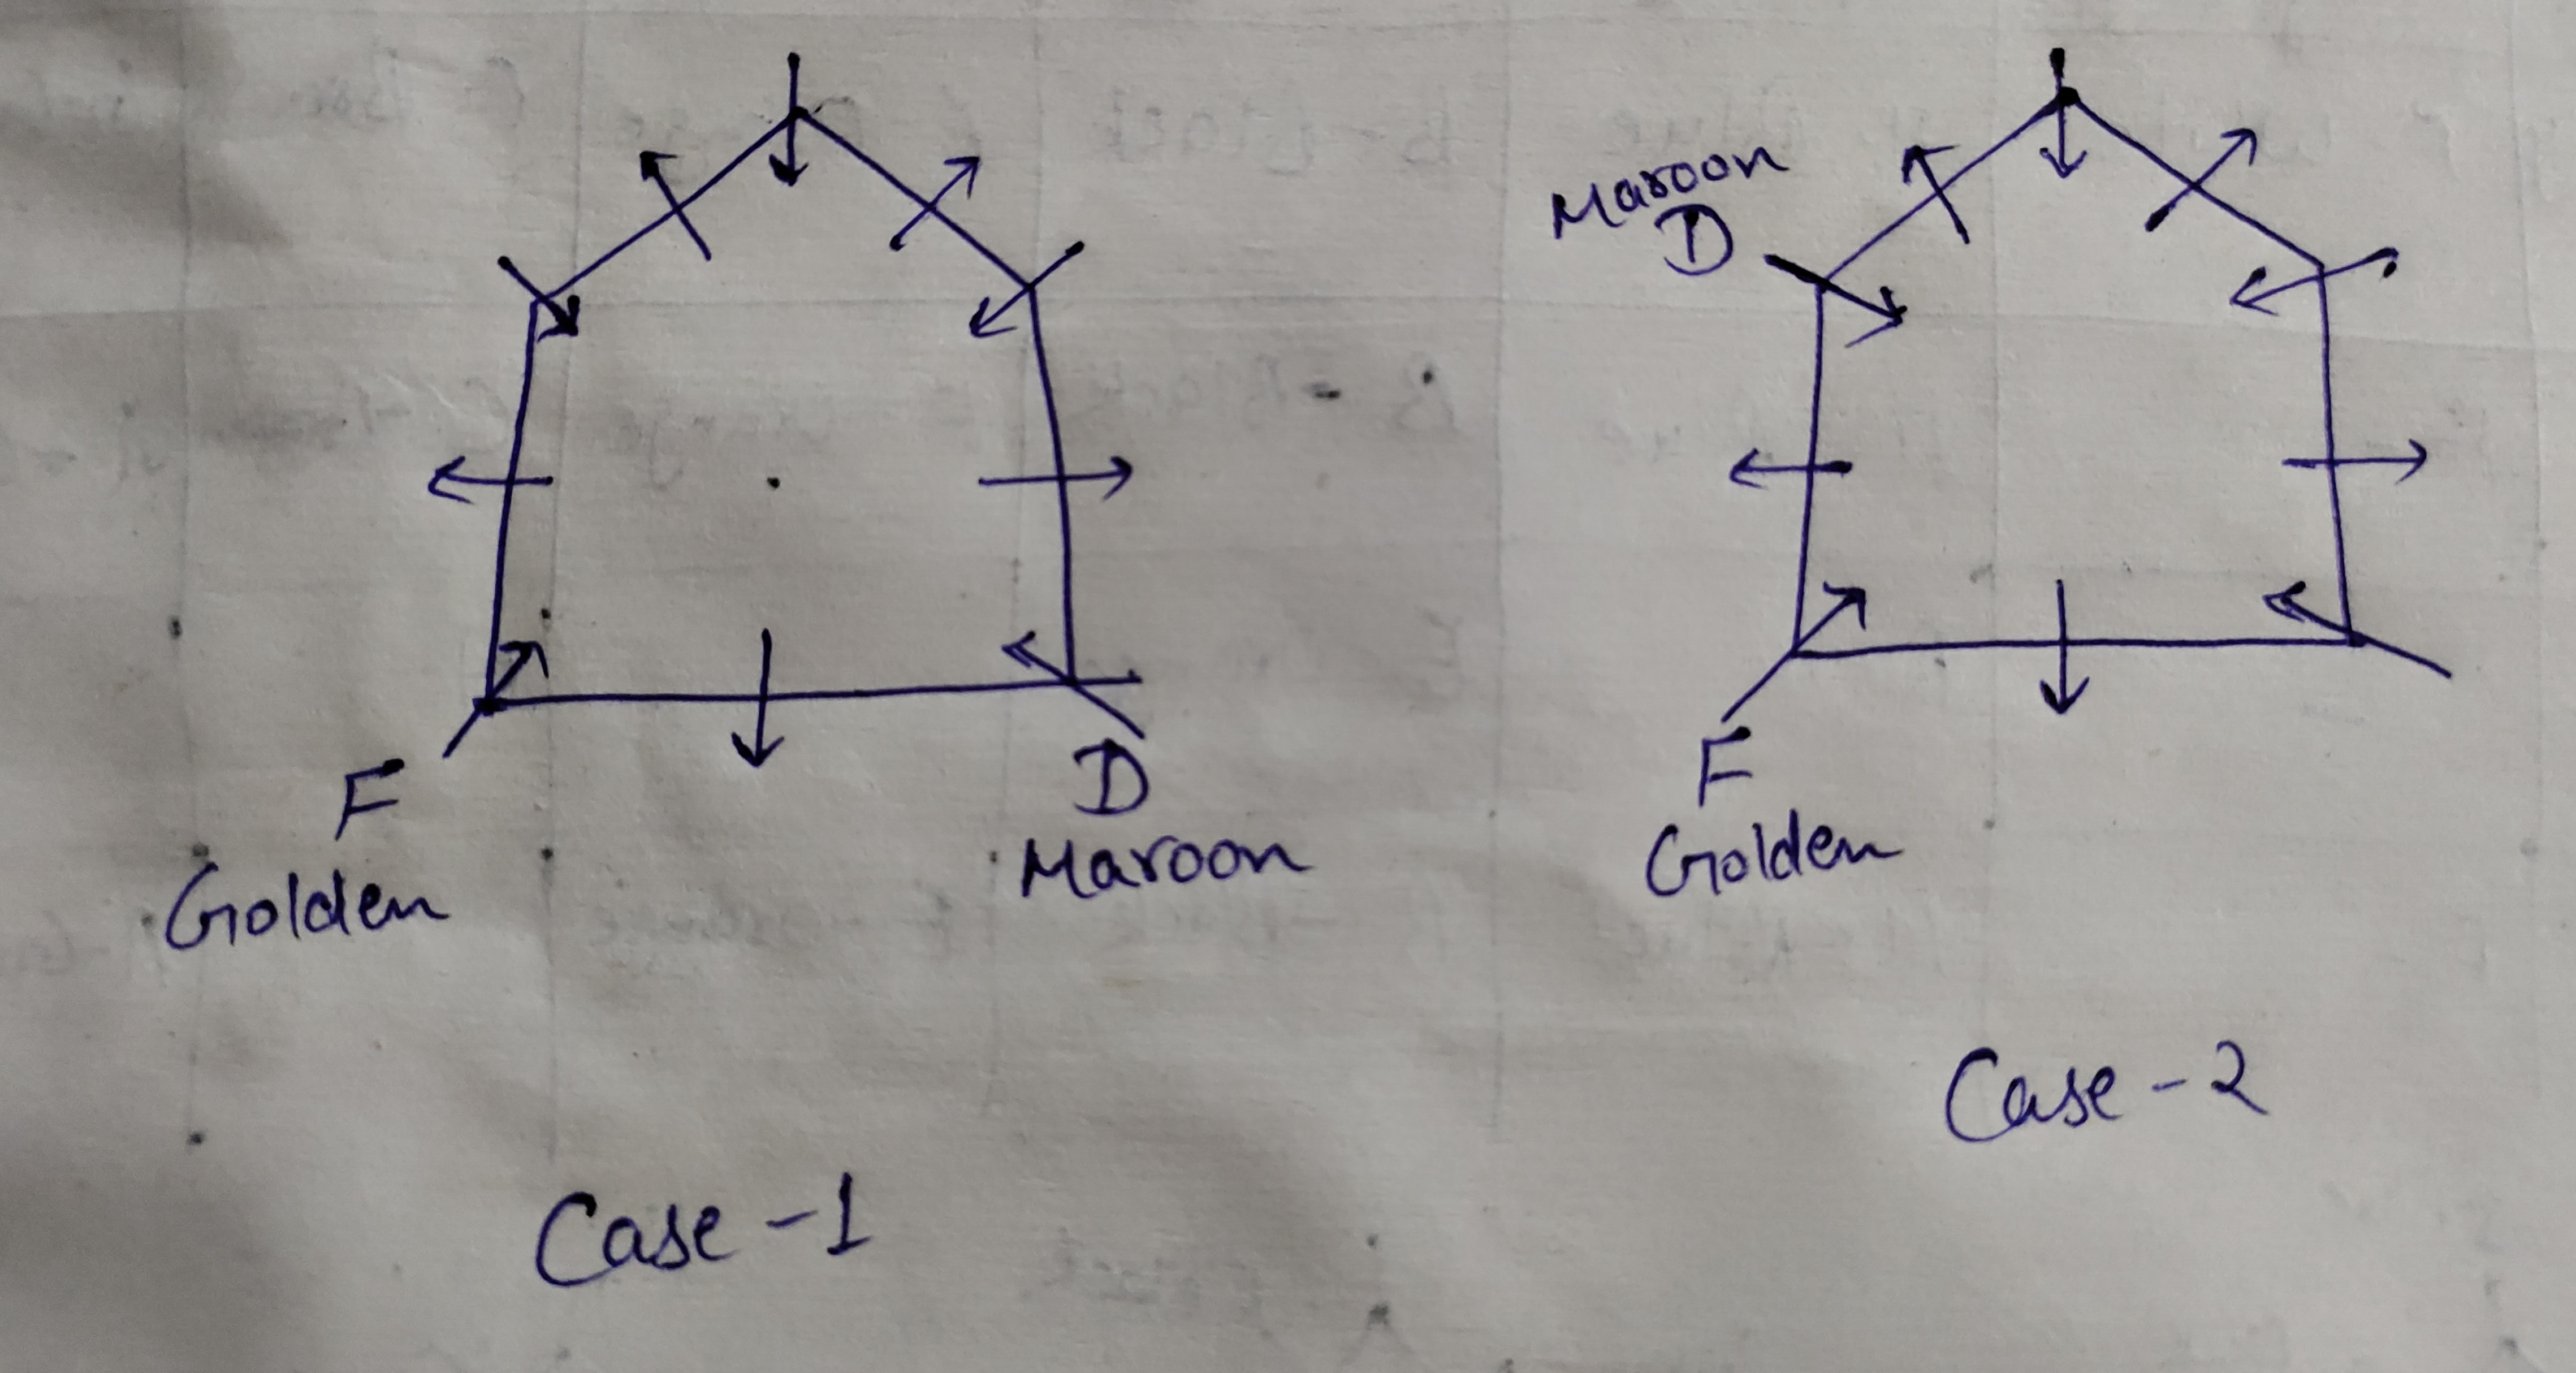 F
Golden
D
Maroon
Case-1
Maroon
D
F
Golden
Case-2